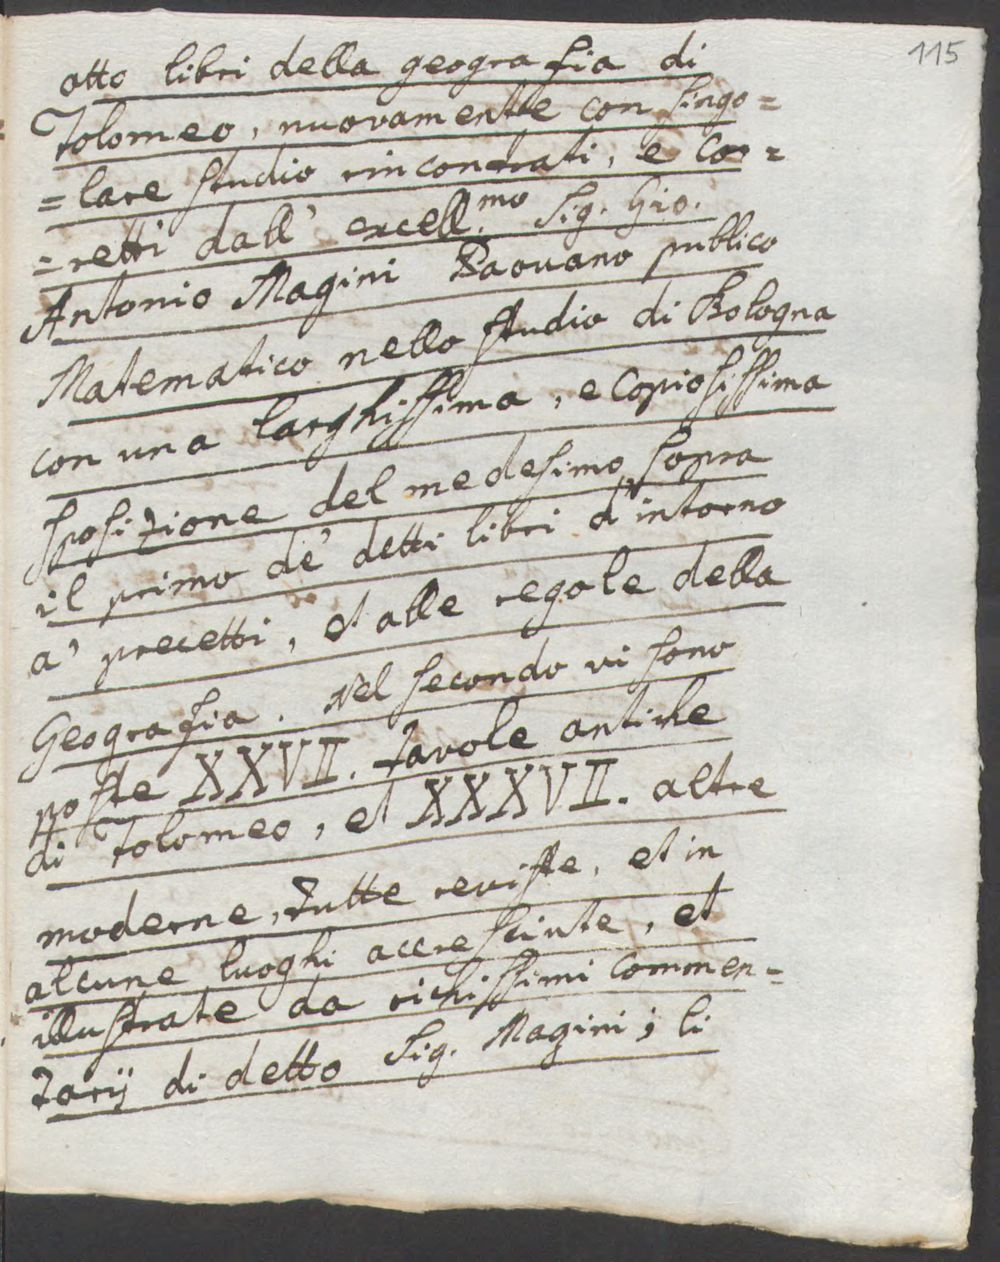 115
otto libri della geografia di
Tolomeo, nuovamente con singo=
=lare studio rincontrati, e cor=
=retti dall' excell.mo Sig. Gio.
Antonio Magini Paovano publico
Matematico nello studio di Bologna
con una larghissima, e copiosissima
sposizione del medesimo sopra
il primo de' detti libri d'intorno
a' precetti, et alle regole della
Geografia. Nel secondo vi sono
poste XXVII. tavole antiche
di Tolomeo, et XXXVII. altre
moderne, tutte reviste, et in
alcune luoghi accresciute, et
illustrate da richissimi commen=
tarij di detto Sig. Magini; li